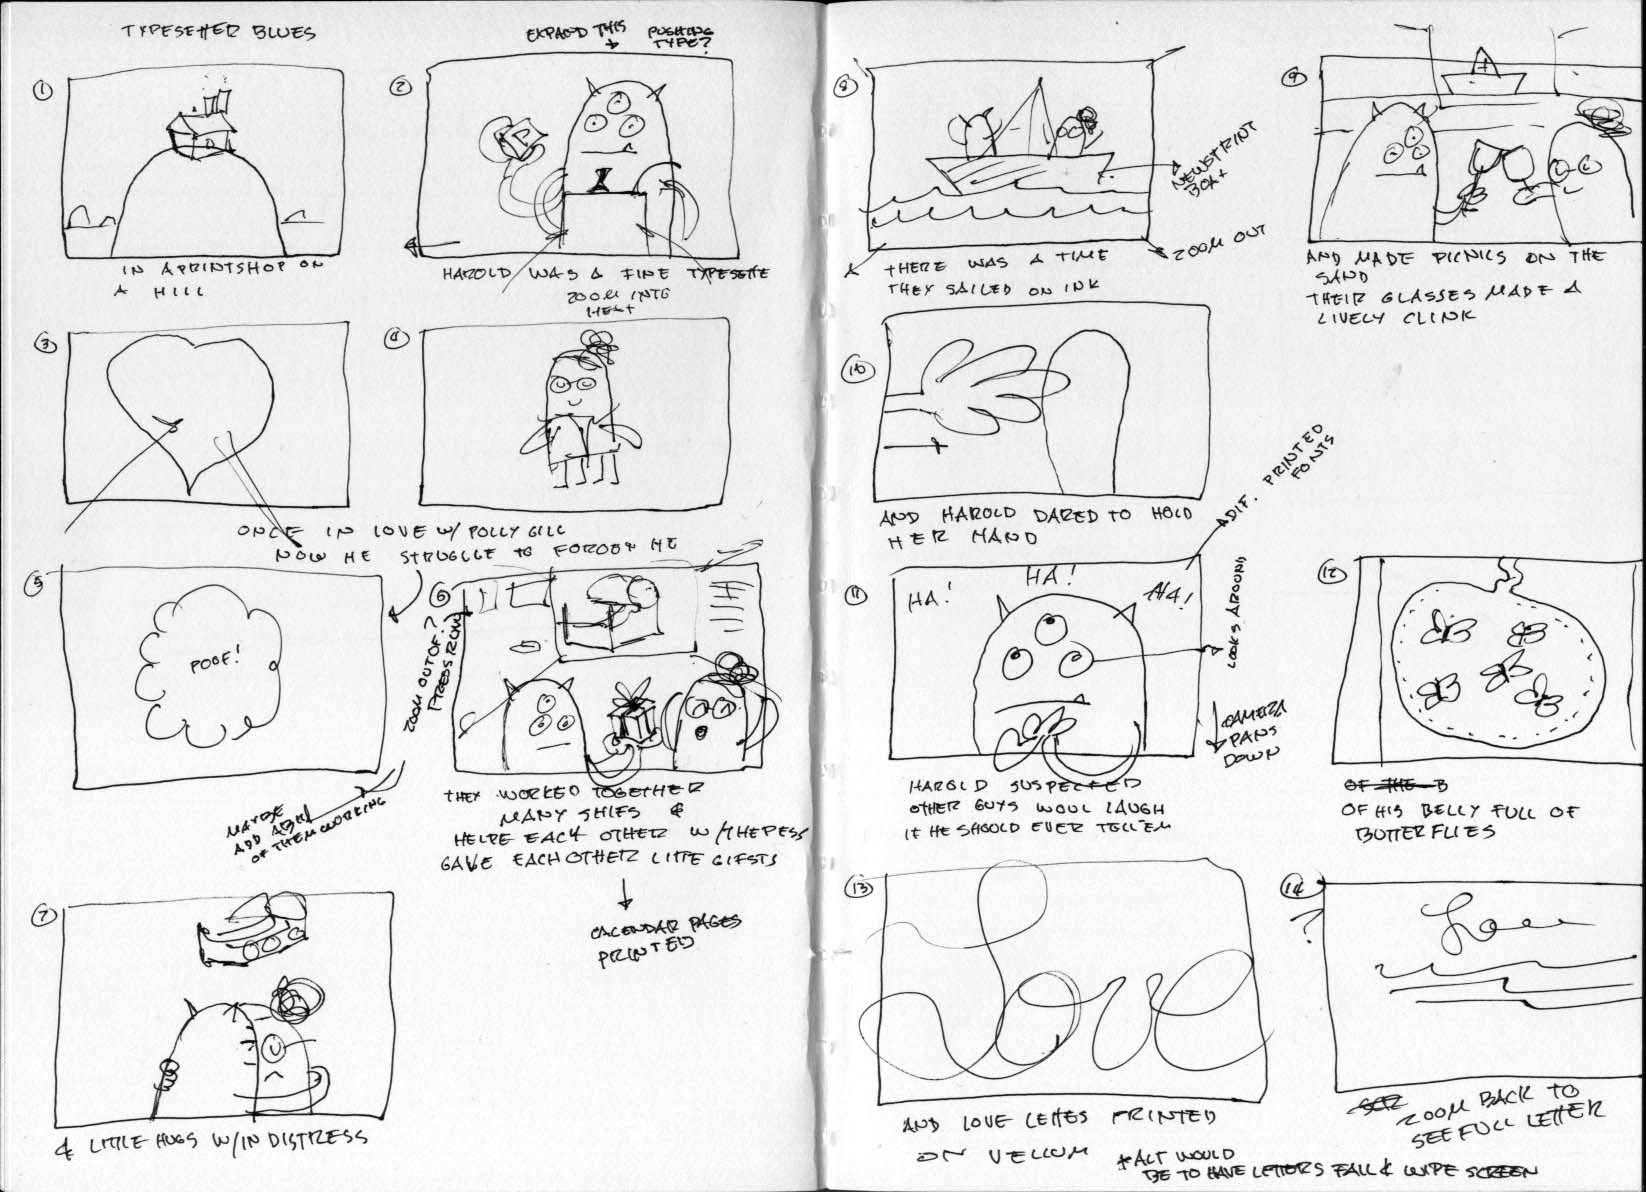 TYPESETTER BLUES
1
IN A PRINTSHOP ON
A HILL
EXPAND THIS
PUSHING
TYPE?
2
HAROLD WAS A FINE TYPESETTE
ZOOM INTO
3
4
ONCE IN LOVE W/ POLLY GILL
NOW HE STRUGGLE TO FORGET HE
5
POOF!
MAYBE
ADD
OF THEM WORKING
ZOOM OUT OF?
PRESS ROOM
6
THEY WORKED TOGETHER
MANY SHIFS &
HELPE EACH OTHER W/ THE PESS
GAVE EACH OTHER LITTE GIFSTS
CALENDAR PAGES
PRINTED
7
& LITTLE HUGS W/IN DISTRESS
8
NEWSPRINT
BOAT
ZOOM OUT
THERE WAS A TIME
THEY SAILED ON INK
9
AND MADE PICNICS ON THE
SAND
THEIR GLASSES MADE A
LIVELY CLINK
10
AND HAROLD DARED TO HOLD
HER HAND
DIF. PRINTED
FONTS
11
HA!
HA!
HA!
LOOKS AROUND
CAMERA
PANS
DOWN
HAROLD SUSPECTED
OTHER GUYS WOUL LAUGH
IF HE SHOULD EVER TELL 'EM
12
OF THE B
OF HIS BELLY FULL OF
BUTTERFLIES
13
Love
AND LOVE LETTES PRINTED
ON VELLUM
14
?
Love
ZOOM BACK TO
SEE FULL LETTER
*ALT WOULD
BE TO HAVE LETTERS FALL & WIPE SCREEN